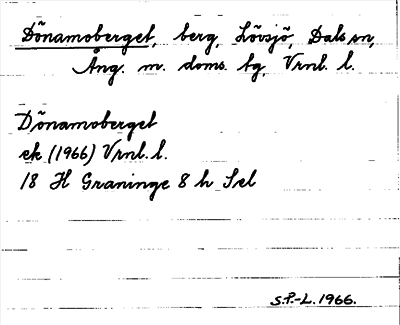 Dönamoberget, berg, Lövsjö, Dals sn,
Ång. m. doms. bg, Vrnl. l.
Dönamoberget
ek (1966) Vrnl. l.
18 H Graninge 8 h Sel
S.P.-L. 1966.